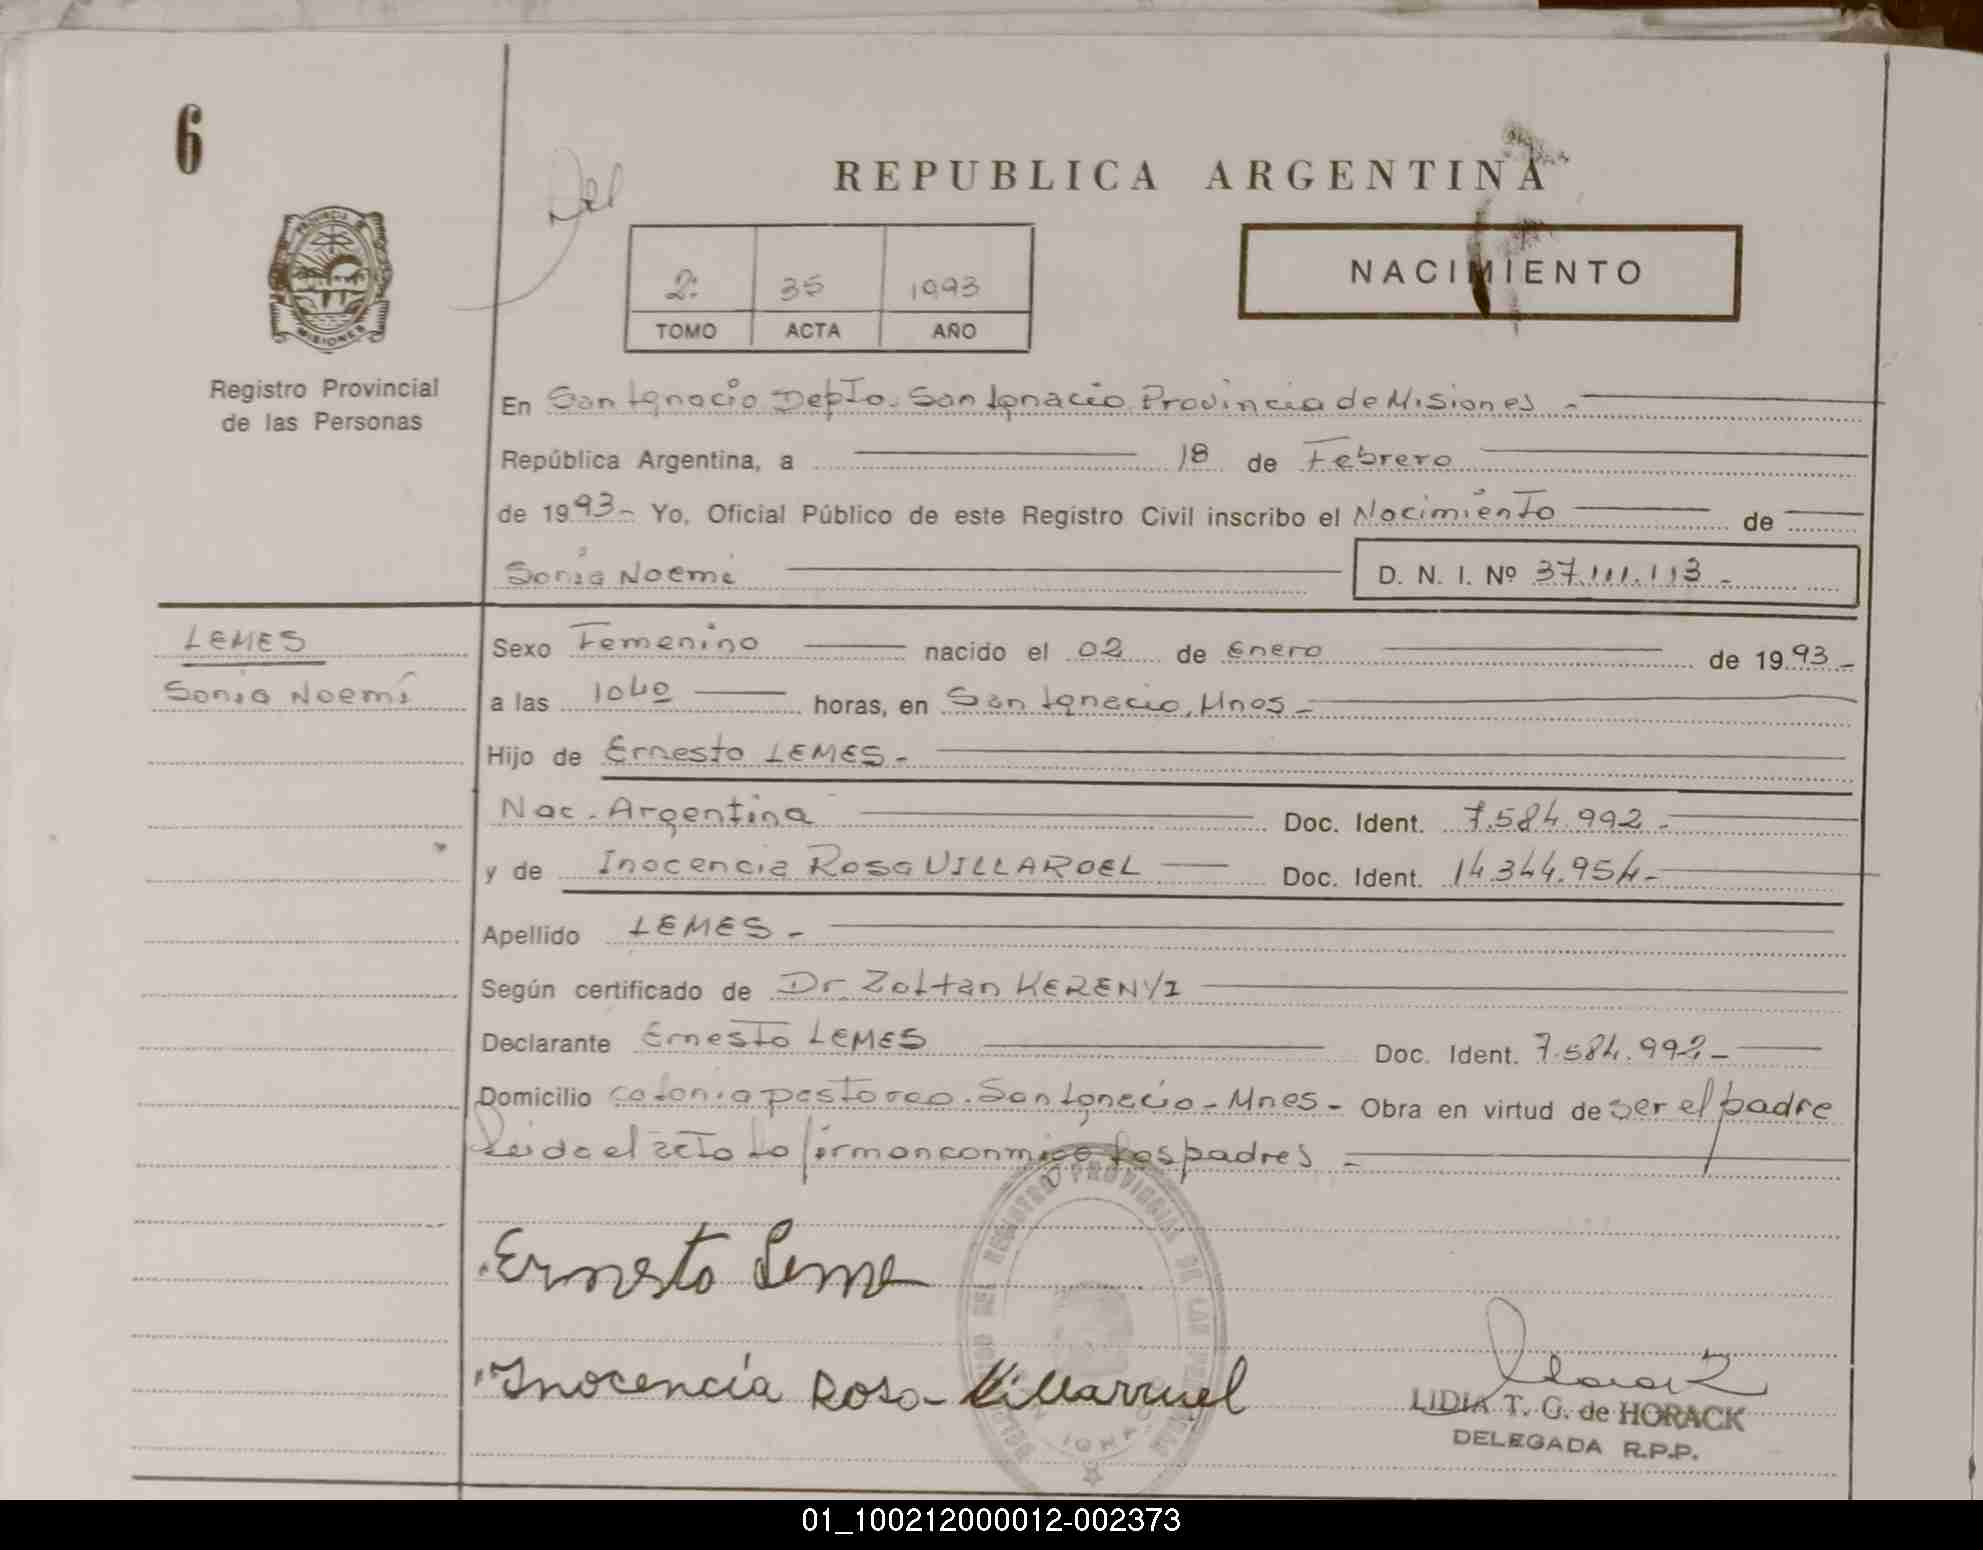 6
Del
REPUBLICA ARGENTINA
PROVINCIA DE
MISIONES
2º 35 1993
TOMO ACTA AÑO
NACIMIENTO
Registro Provincial
de las Personas
En San Ignacio Depto. San Ignacio Provincia de Misiones -
República Argentina, a 18 de Febrero
de 1993- Yo, Oficial Público de este Registro Civil inscribo el Nacimiento de
Sonia Noemi D. N. I. Nº 37.111.113-
LEMES
Sonia Noemí
Sexo Femenino nacido el 02 de Enero de 1993-
a las 1040 horas, en San Ignacio, Mnes-
Hijo de Ernesto LEMES-
Nac. Argentina Doc. Ident. 7.584.992-
y de Inocencia Rosa VILLAROEL Doc. Ident. 14.344.954-
Apellido LEMES-
Según certificado de Dr. Zoltan KERENYI
Declarante Ernesto LEMES Doc. Ident. 7.584.992-
Domicilio colonia pastoreo. San Ignacio - Mnes - Obra en virtud de ser el padre
Leida el acta la firman conmigo los padres -
Ernesto Leme
Inocencia Rosa Villarruel
LIDIA T. G. de HORACK
DELEGADA R.P.P.
01_100212000012-002373